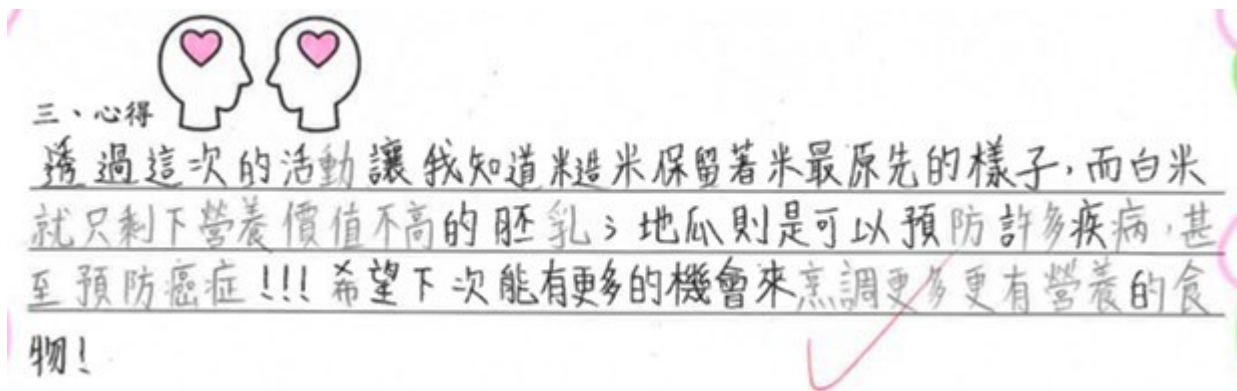 三、心得
透過這次的活動讓我知道糙米保留著米最原先的樣子，而白米
就只剩下營養價值不高的胚乳；地瓜則是可以預防許多疾病，甚
至預防癌症!!!希望下次能有更多的機會來烹調更多更有營養的食
物！